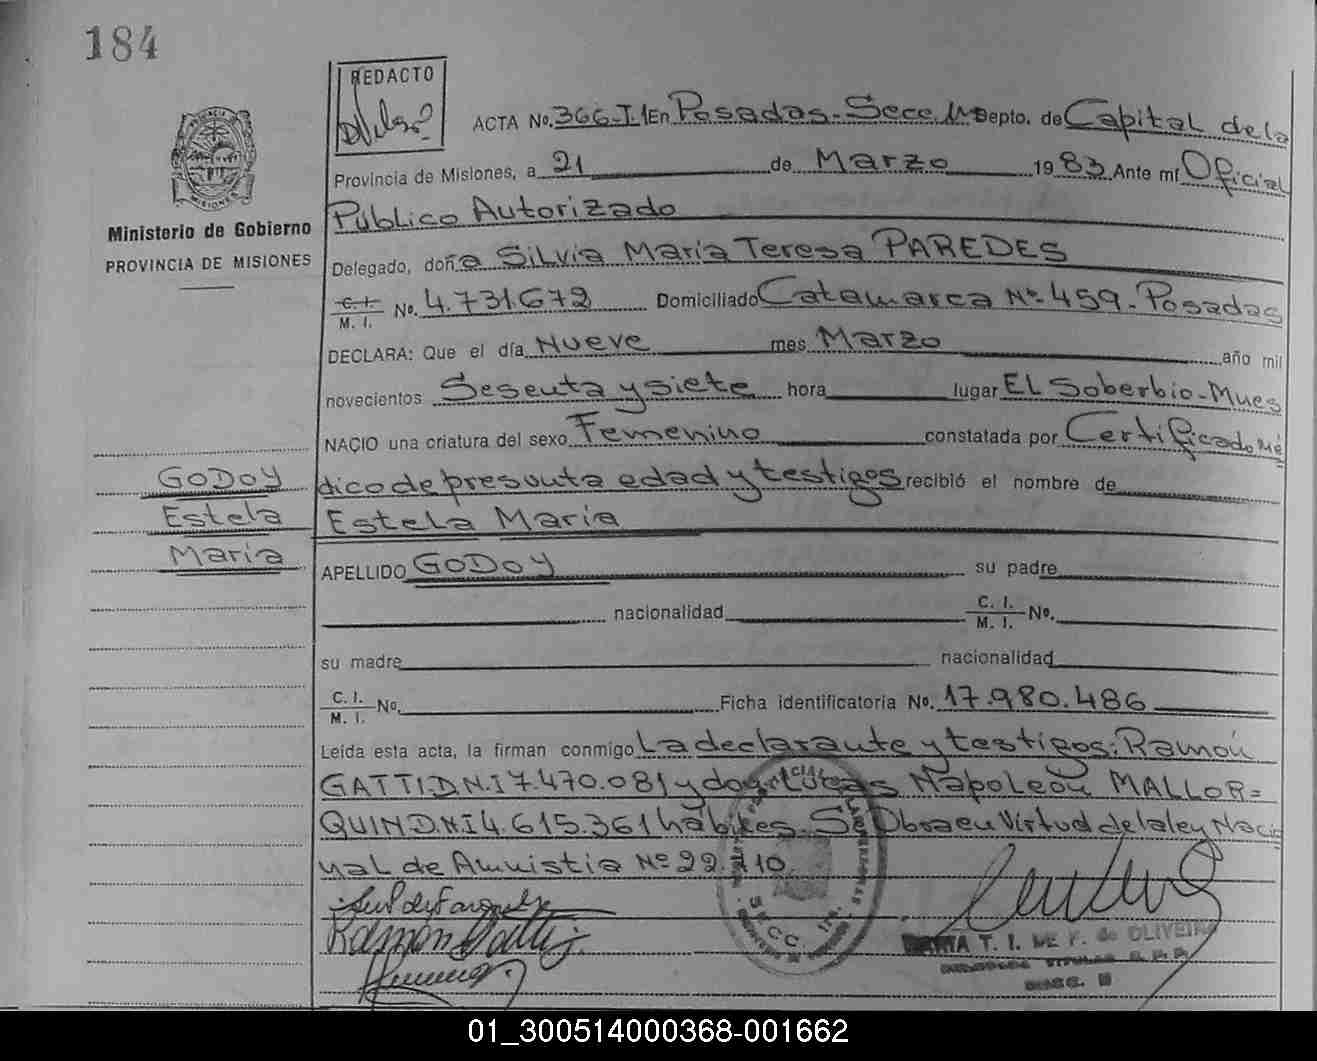 184
REDACTO
ACTA No. 366-T.I En Posadas - Secc. 1ra Depto. de Capital de la
Provincia de Misiones, a 21 de Marzo 1983 Ante mí Oficial
Ministerio de Gobierno
PROVINCIA DE MISIONES
Público Autorizado
Delegado, doña Silvia María Teresa PAREDES
C. I. / M. I. No. 4.731.672 Domiciliado Catamarca Nº 459 - Posadas
DECLARA: Que el día Nueve mes Marzo año mil
novecientos Sesenta y siete hora lugar El Soberbio - Mnes
NACIO una criatura del sexo Femenino constatada por Certificado Mé
GODOY
Estela
María
dico de presunta edad y testigos recibió el nombre de
Estela María
APELLIDO GODOY su padre
nacionalidad C. I. / M. I. No.
su madre nacionalidad
C. I. / M. I. No. Ficha identificatoria No. 17.980.486
Leída esta acta, la firman conmigo La declarante y testigos: Ramón
GATTI D.N.I 7.470.081 y don Lucas Napoleón MALLOR=
QUIN D.N.I 4.615.361 hábiles. S/ Obra en Virtud de la ley Nacio
nal de Amnistia Nº 22.110
Ramón Gatti
T. I. DE F. de OLIVEIRA
SECC. 1ra.
01_300514000368-001662